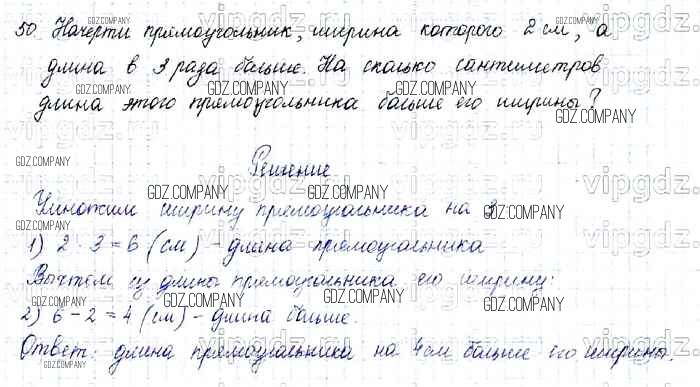 50 Начерти прямоугольник, ширина которого 2 см, а
длина в 3 раза больше. На сколько сантиметров
длина этого прямоугольника больше его ширины?
Решение
Умножим ширину прямоугольника на 3:
1) 2 · 3 = 6 (см) - длина прямоугольника
Вычтем из длины прямоугольника его ширину:
2) 6 - 2 = 4 (см) - длина больше.
Ответ: длина прямоугольника на 4 см больше его ширины.
vipgdz.ru
GDZ.COMPANY